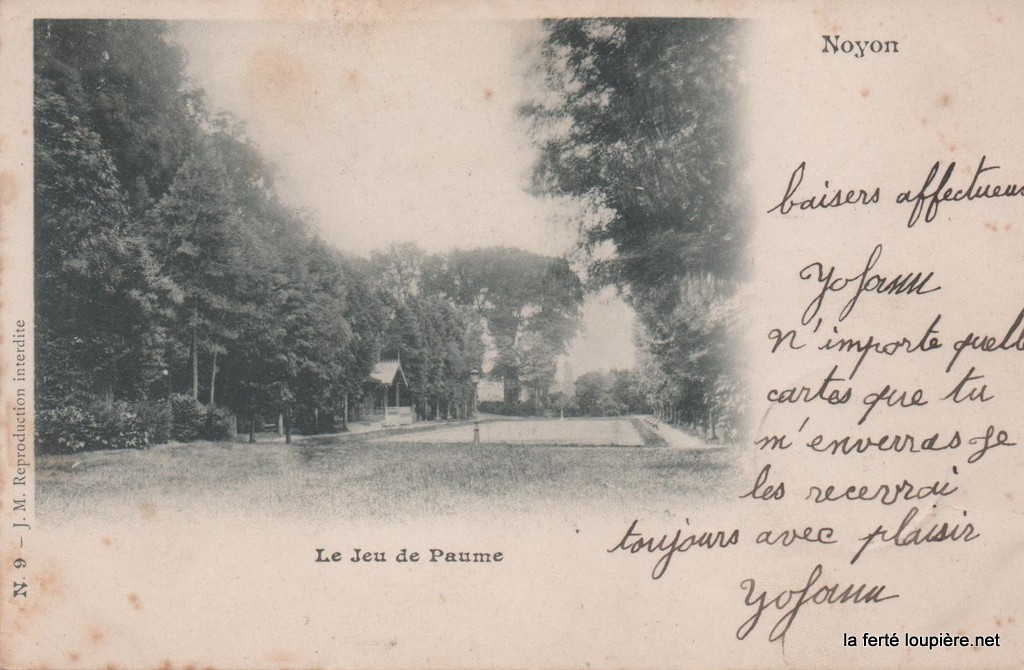 Noyon
baisers affectueux
n'importe quelle
cartes que tu
m'enverras Je
les recevrai
toujours avec plaisir
Le Jeu de Paume
N. 9 – J. M. Reproduction interdite
la ferté loupière.net